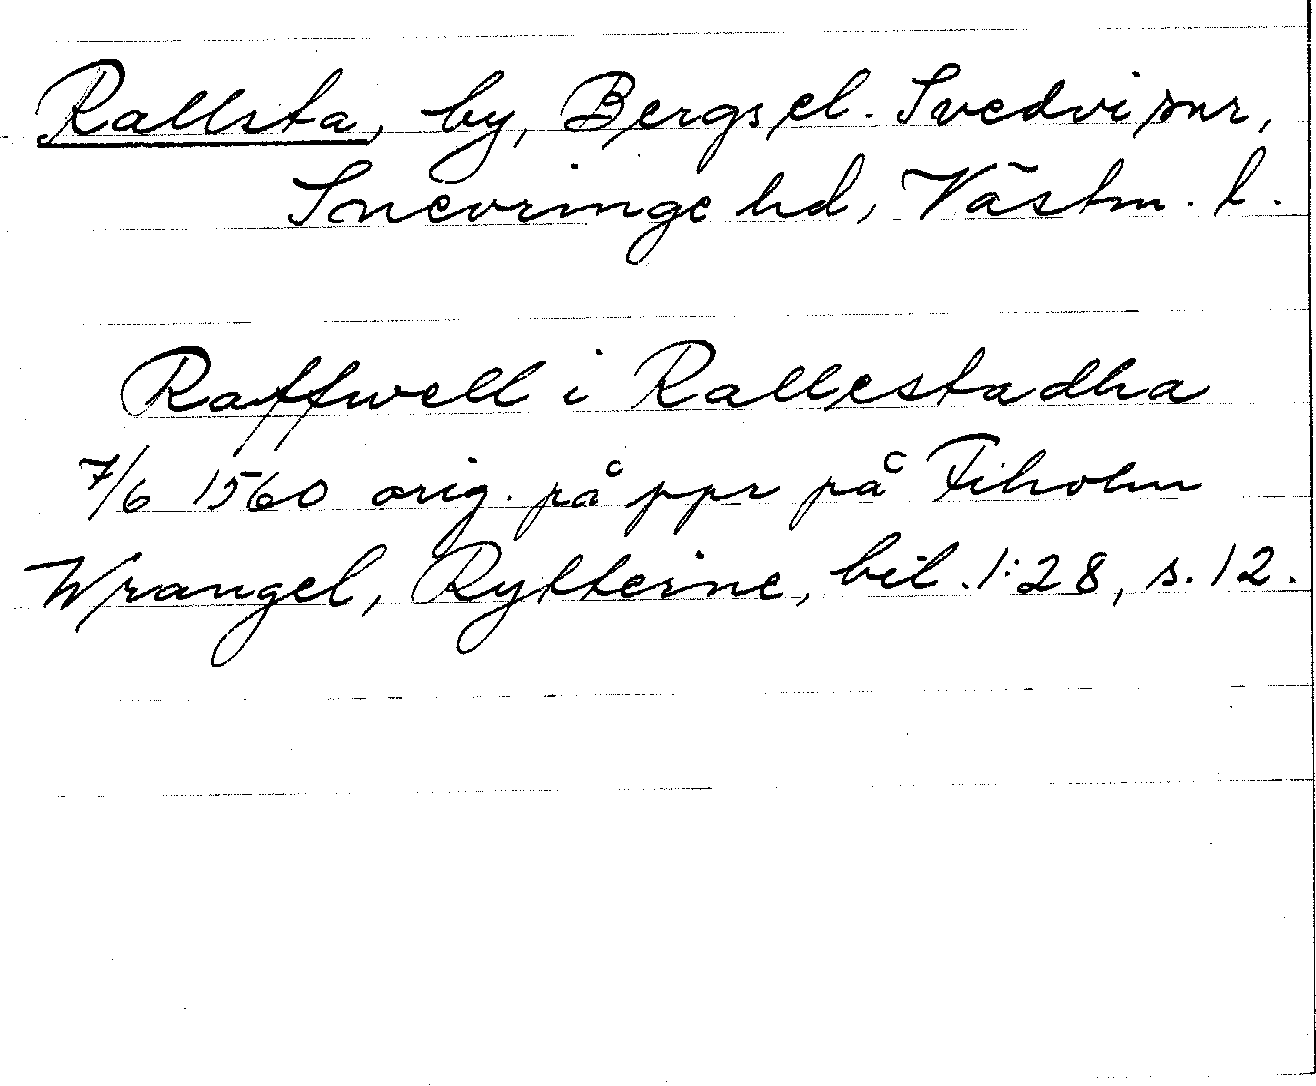 Rallsta, by, Bergs el. Svedvi snr,
Snevringe hd, Västm. l.
Raffwell i Rallestadha
7/6 1560 orig. på ppr på Fiholm
Wrangel, Rytterne, bil. 1:28, s. 12.